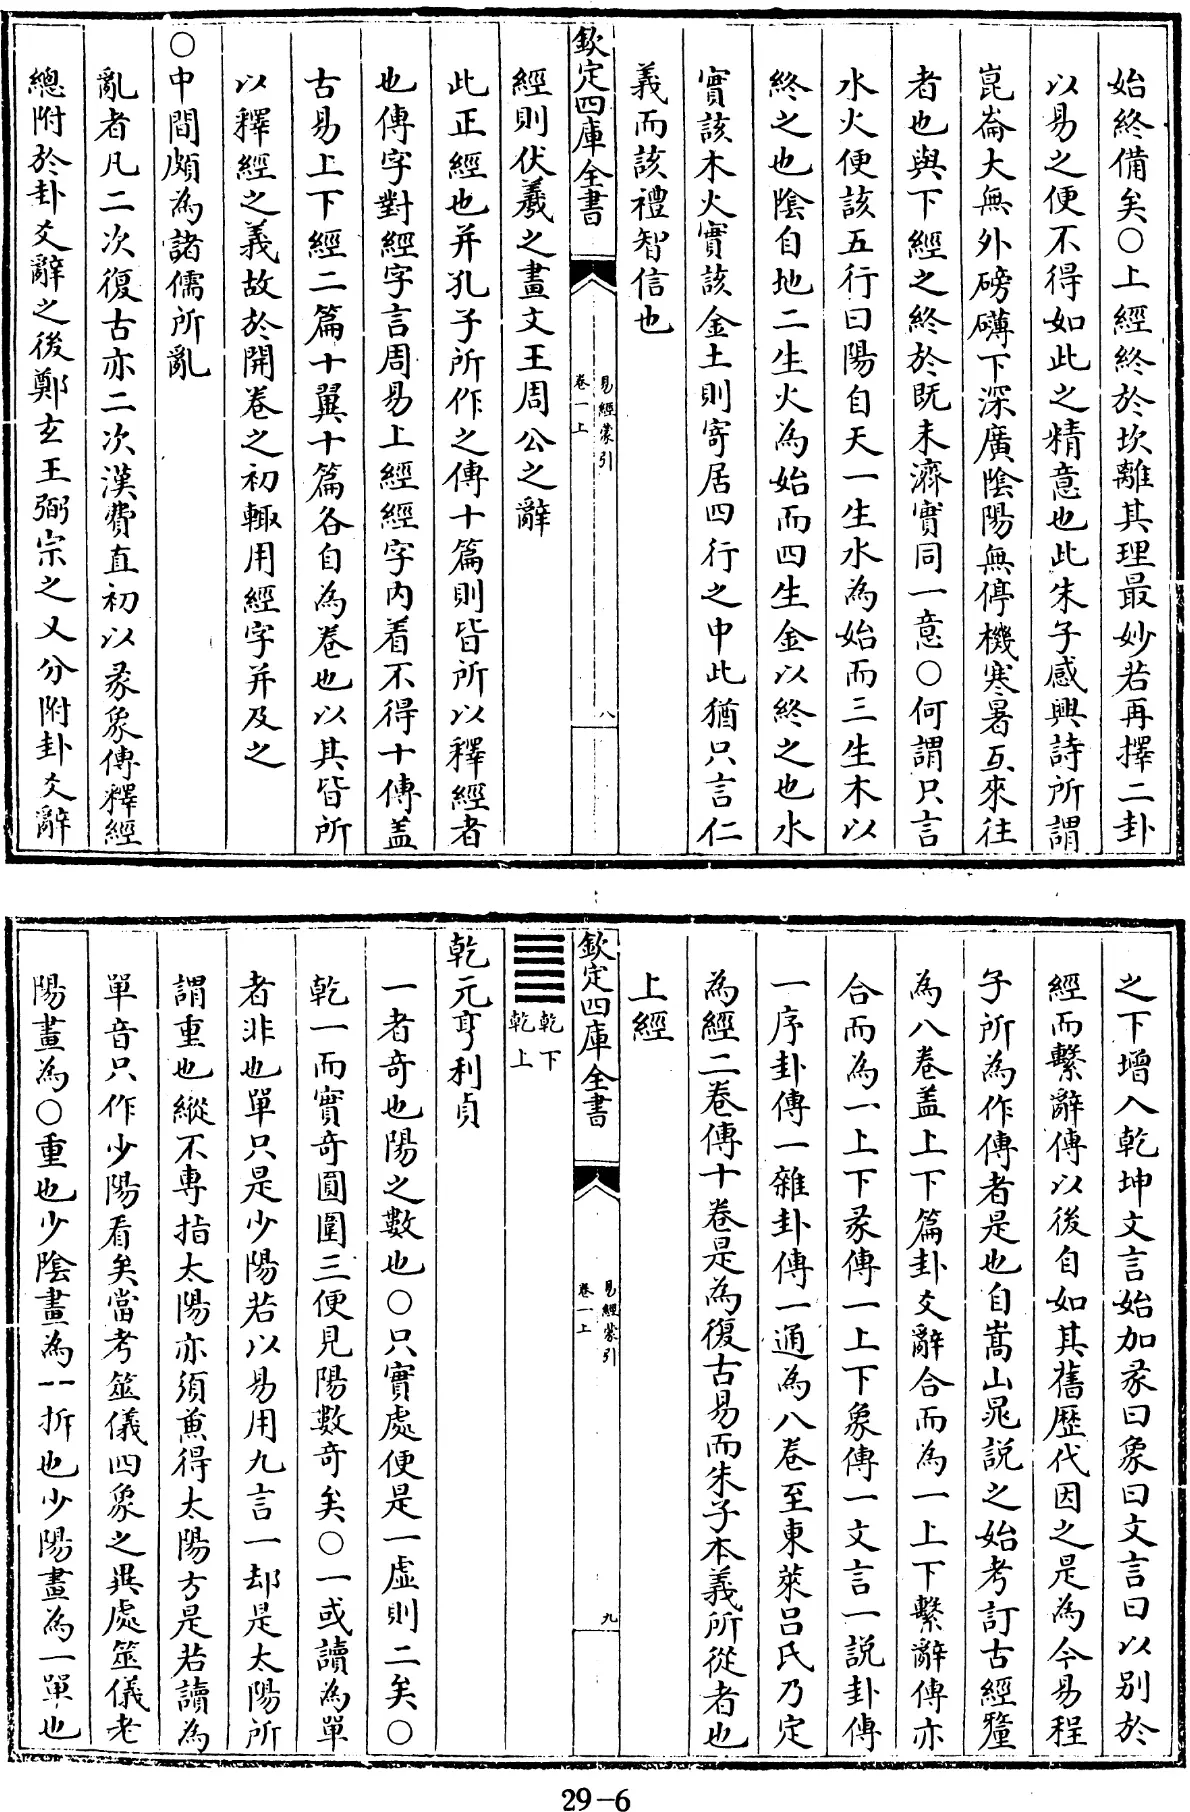 始終備矣○上經終於坎離其理最妙若再擇二卦
以易之便不得如此之精意也此朱子感興詩所謂
崑崙大無外磅礴下深廣陰陽無停機寒暑互來往
者也與下經之終於既未濟實同一意○何謂只言
水火便該五行曰陽自天一生水為始而三生木以
終之也陰自地二生火為始而四生金以終之也水
實該木火實該金土則寄居四行之中此猶只言仁
義而該禮智信也
欽定四庫全書
易經蒙引
卷一上
八
經則伏羲之畫文王周公之辭
此正經也并孔子所作之傳十篇則皆所以釋經者
也傳字對經字言周易上經經字内着不得十傳盖
古易上下經二篇十翼十篇各自為卷也以其皆所
以釋經之義故於開卷之初輙用經字并及之
○中間頗為諸儒所亂
亂者凡二次復古亦二次漢費直初以彖象傳釋經
總附於卦爻辭之後鄭玄王弼宗之又分附卦爻辭
之下增入乾坤文言始加彖曰象曰文言曰以别於
經而繫辭傳以後自如其舊歴代因之是為今易程
子所為作傳者是也自嵩山晁説之始考訂古經釐
為八卷盖上下篇卦爻辭合而為一上下繫辭傳亦
合而為一上下彖傳一上下象傳一文言一説卦傳
一序卦傳一雜卦傳一通為八卷至東萊吕氏乃定
為經二卷傳十卷是為復古易而朱子本義所從者也
上經
欽定四庫全書
易經蒙引
卷一上
九
䷀
乾下
乾上
乾元亨利貞
一者奇也陽之數也○只實處便是一虚則二矣○
乾一而實奇圓圍三便見陽數奇矣○一或讀為單
者非也單只是少陽若以易用九言一却是太陽所
謂重也縱不専指太陽亦須兼得太陽方是若讀為
單音只作少陽看矣當考筮儀四象之異處筮儀老
陽畫為○重也少陰畫為--折也少陽畫為一單也
29-6